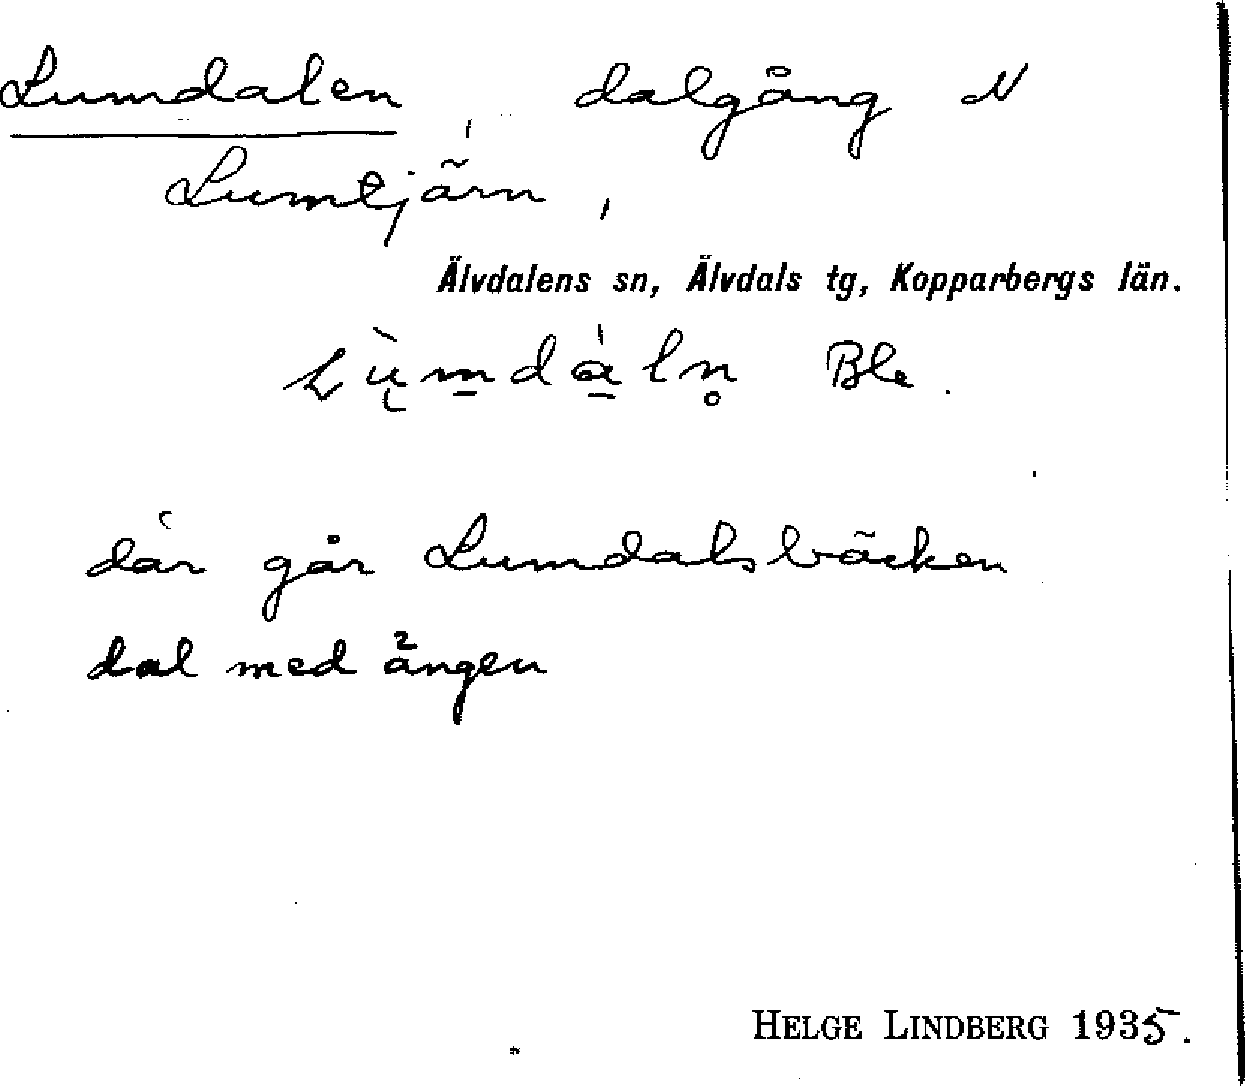 Lumdalen, dalgång N
Lumtjärn,
Älvdalens sn, Älvdals tg, Kopparbergs län.
Lù̢m̲dá̲ln̥ Ble.
där går Lumdalsbäcken
dal med ängen
HELGE LINDBERG 1935.